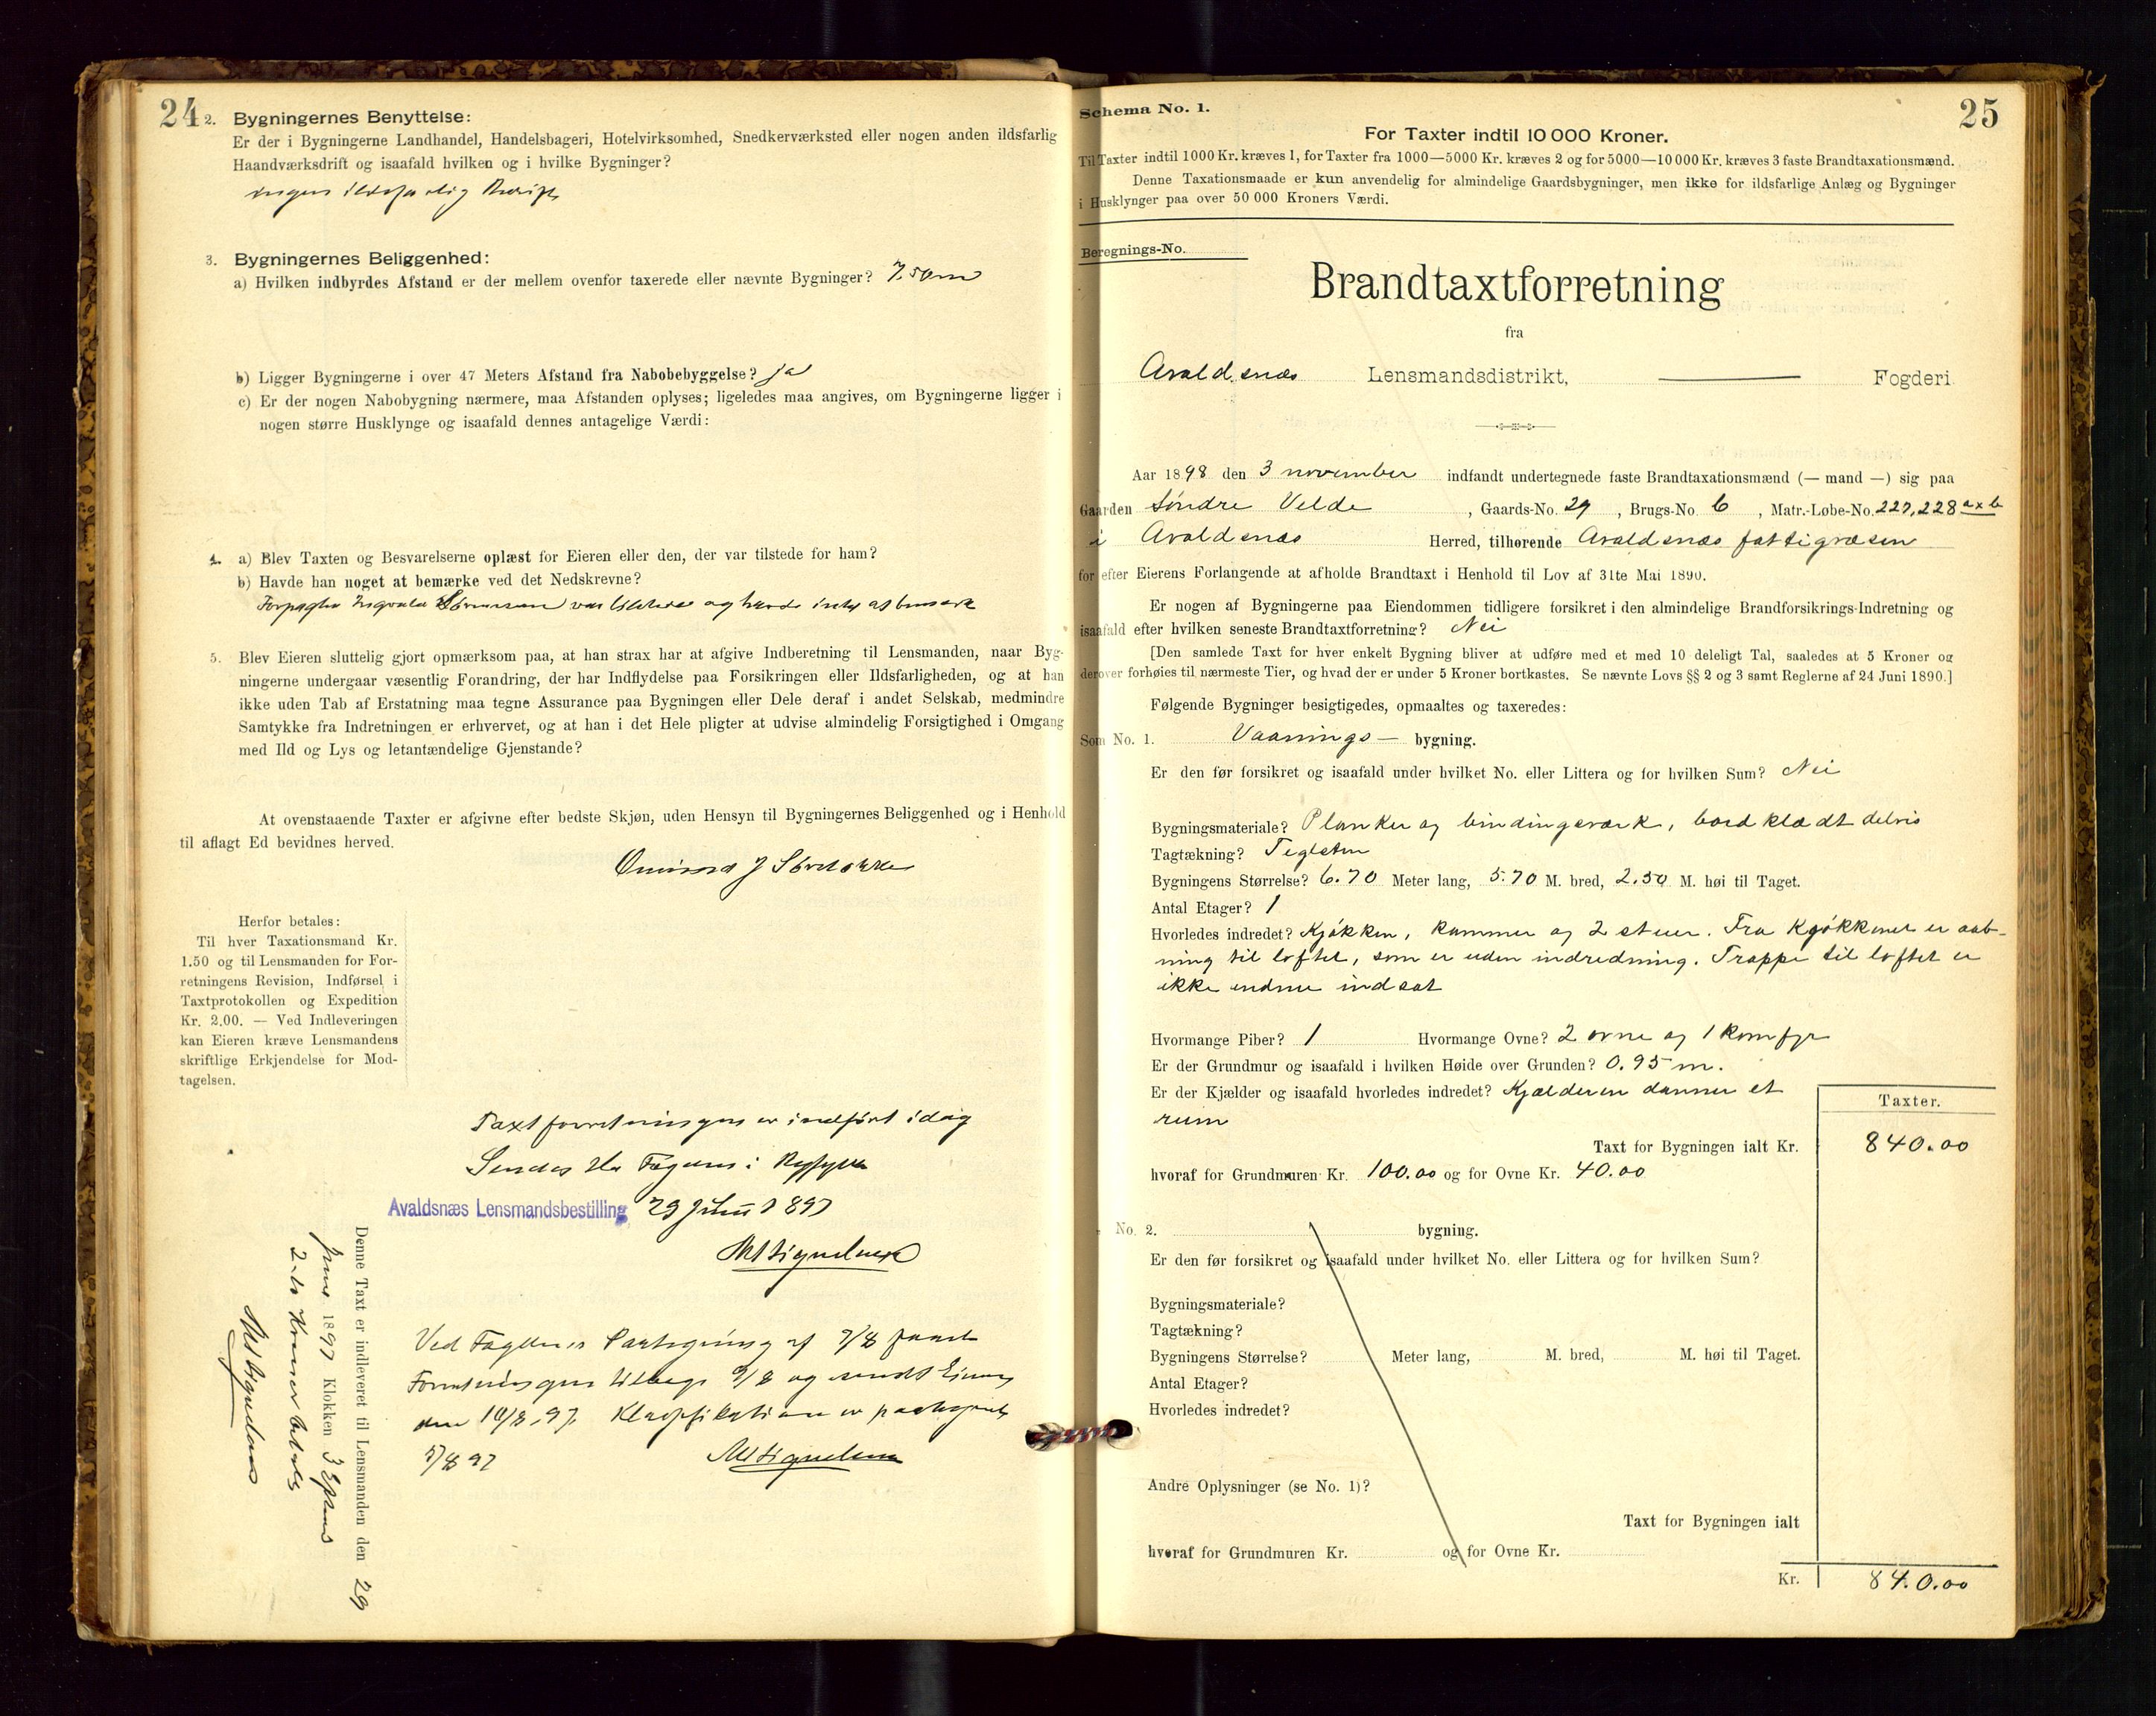 24
2. Bygningernes Benyttelse:
Er der i Bygningerne Landhandel, Handelsbageri, Hotelvirksomhed, Snedkerværksted eller nogen anden ildsfarlig
Haandværksdrift og isaafald hvilken og i hvilke Bygninger?
ingen ildsfarlig
3. Bygningernes Beliggenhed:
a) Hvilken indbyrdes Afstand er der mellem ovenfor taxerede eller nævnte Bygninger? 7.50m
b) Ligger Bygningerne i over 47 Meters Afstand fra Nabobebyggelse? ja
c) Er der nogen Nabobygning nærmere, maa Afstanden oplyses; ligeledes maa angives, om Bygningerne ligger i
nogen større Husklynge og isaafald dennes antagelige Værdi:
4. a) Blev Taxten og Besvarelserne oplæst for Eieren eller den, der var tilstede for ham?
b) Havde han noget at bemærke ved det Nedskrevne?
var tilstede og havde intet at bemærke
5. Blev Eieren sluttelig gjort opmærksom paa, at han strax har at afgive Indberetning til Lensmanden, naar Byg-
ningerne undergaar væsentlig Forandring, der har Indflydelse paa Forsikringen eller Ildsfarligheden, og at han
ikke uden Tab af Erstatning maa tegne Assurance paa Bygningen eller Dele deraf i andet Selskab, medmindre
Samtykke fra Indretningen er erhvervet, og at han i det Hele pligter at udvise almindelig Forsigtighed i Omgang
med Ild og Lys og letantændelige Gjenstande?
At ovenstaaende Taxter er afgivne efter bedste Skjøn, uden Hensyn til Bygningernes Beliggenhed og i Henhold
til aflagt Ed bevidnes herved.
Herfor betales:
Til hver Taxationsmand Kr.
1.50 og til Lensmanden for For-
retningens Revision, Indførsel i
Taxtprotokollen og Expedition
Kr. 2.00. — Ved Indleveringen
kan Eieren kræve Lensmandens
skriftlige Erkjendelse for Mod-
tagelsen.
Taxtforretningen er indført idag
Sendes Hr Fogden i
Avaldsnæs Lensmandsbestilling 29 Juni 1897
Ved Fogdens Paategning af 7/8
Forretningen tilbage 9/8 og sendt
den 10/8.97. Klassifikationen er paategnet
97
Denne Taxt er indleveret til Lensmanden den 29
Juni 1897 Klokken 3
2-to Kroner betalt
Schema No. 1.
25
For Taxter indtil 10 000 Kroner.
Til Taxter indtil 1000 Kr. kræves 1, for Taxter fra 1000—5000 Kr. kræves 2 og for 5000—10 000 Kr. kræves 3 faste Brandtaxationsmænd.
Denne Taxationsmaade er kun anvendelig for almindelige Gaardsbygninger, men ikke for ildsfarlige Anlæg og Bygninger
i Husklynger paa over 50 000 Kroners Værdi.
Beregnings-No.
Brandtaxtforretning
fra
Avaldsnæs Lensmandsdistrikt, — Fogderi
Aar 1898 den 3 november indfandt undertegnede faste Brandtaxationsmænd (— mand —) sig paa
Gaarden Søndre Velde, Gaards-No. 29, Brugs-No. 6, Matr.-Løbe-No. 227, 228 a x b
i Avaldsnæs Herred, tilhørende Avaldsnæs fattigvæsen
for efter Eierens Forlangende at afholde Brandtaxt i Henhold til Lov af 31te Mai 1890.
Er nogen af Bygningerne paa Eiendommen tidligere forsikret i den almindelige Brandforsikrings-Indretning og
isaafald efter hvilken seneste Brandtaxtforretning? Nei
[Den samlede Taxt for hver enkelt Bygning bliver at udføre med et med 10 deleligt Tal, saaledes at 5 Kroner og
derover forhøies til nærmeste Tier, og hvad der er under 5 Kroner bortkastes. Se nævnte Lovs §§ 2 og 3 samt Reglerne af 24 Juni 1890.]
Følgende Bygninger besigtigedes, opmaaltes og taxeredes:
Som No. 1. Vaanings — bygning.
Er den før forsikret og isaafald under hvilket No. eller Littera og for hvilken Sum? Nei
Bygningsmateriale? Planker og bindingsværk, bordklædt delvis
Tagtækning? Teglsten
Bygningens Størrelse? 6.70 Meter lang, 5.70 M. bred, 2.50 M. høi til Taget.
Antal Etager? 1
Hvorledes indredet? Kjøkken, kammer og 2 stuer. Fra Kjøkkenet er aab-
ning til loftet, som er uden indredning. Trappe til loftet er
ikke endnu indsat
Hvormange Piber? 1 Hvormange Ovne? 2 ovne og 1 komfyr
Er der Grundmur og isaafald i hvilken Høide over Grunden? 0.95 m.
Er der Kjælder og isaafald hvorledes indredet? Kjælderen danner et
rum
Taxter.
Taxt for Bygningen ialt Kr. 840.00
hvoraf for Grundmuren Kr. 100.00 og for Ovne Kr. 40.00
No. 2. bygning.
Er den før forsikret og isaafald under hvilket No. eller Littera og for hvilken Sum?
Bygningsmateriale?
Tagtækning?
Bygningens Størrelse? Meter lang, M. bred, M. høi til Taget.
Antal Etager?
Hvorledes indredet?
Andre Oplysninger (se No. 1)?
Taxt for Bygningen ialt
hvoraf for Grundmuren Kr. og for Ovne Kr.
Kr. 840.00